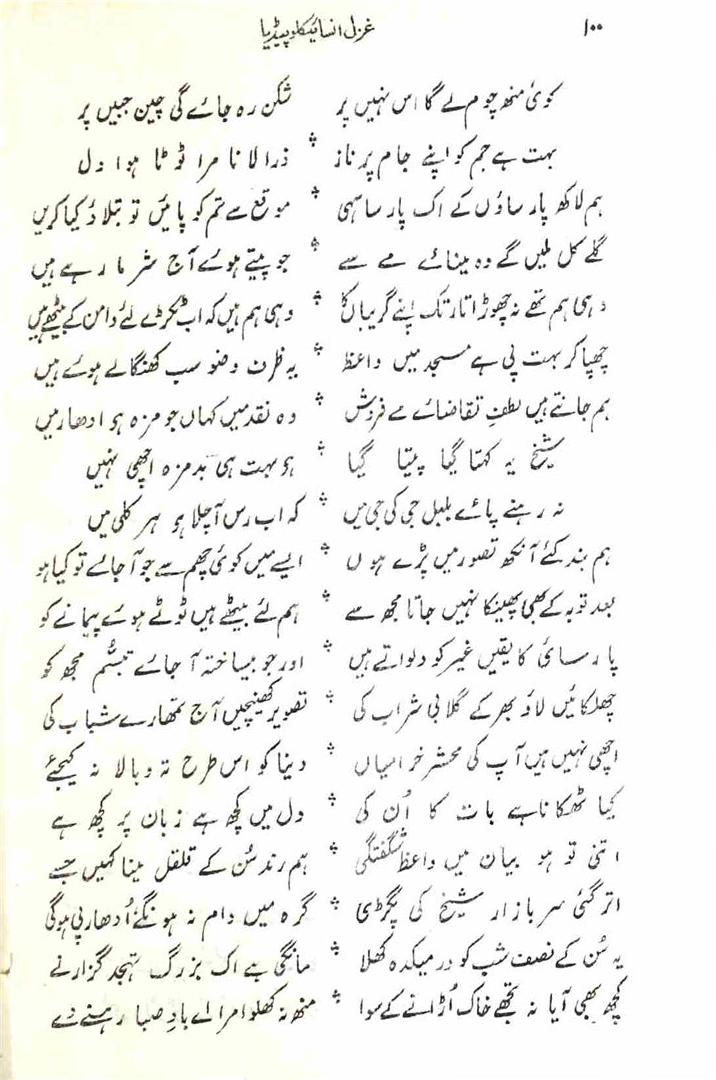 ۱۰۰ غزل انسائیکلوپیڈیا
کوئی منھ چوم لے گا اس نہیں پر شکن رہ جائے گی چین جبیں پر
بہت ہے جم کو اپنے جام پر ناز ؞ ذرا لانا مرا ٹوٹا ہوا دل
ہم لاکھ پارساؤں کے اک پارسا سہی ؞ موقع سے تم کو پائیں تو بتلاؤ کیا کریں
گلے کل ملیں گے وہ مینائے مے سے ؞ جو پیتے ہوئے آج شرما رہے ہیں
وہی ہم تھے نہ چھوڑا تار تک اپنے گریباں کا ؞ وہی ہم ہیں کہ اب ٹکڑے لئے دامن کے بیٹھے ہیں
چھپا کر بہت پی ہے مسجد میں واعظ ؞ یہ ظرف وضو سب کھنگالے ہوئے ہیں
ہم جانتے ہیں لطفِ تقاضائے مے فروش ؞ وہ نقد میں کہاں جو مزہ ہو ادھار میں
شیخ یہ کہتا گیا پیتا گیا ؞ ہو بہت ہی بدمزہ اچھی نہیں
نہ رہنے پائے بلبل جی کی جی میں ؞ کہ اب رس آچلا ہو ہر کلی میں
ہم بند کئے آنکھ تصور میں پڑے ہوں ؞ ایسے میں کوئی چھم سے جو آجائے تو کیا ہو
بعد توبہ کے بھی پھینکا نہیں جاتا مجھ سے ؞ ہم لئے بیٹھے ہیں ٹوٹے ہوئے پیمانے کو
پارسائی کا یقیں غیر کو دلواتے ہیں ؞ اور جو بیساختہ آجائے تبسُّم مجھ کو
چھلکائیں لاؤ بھر کے گلابی شراب کی ؞ تصویر کھینچیں آج تمھارے شباب کی
اچھی نہیں ہیں آپ کی محشر خرامیاں ؞ دینا کو اس طرح تہ وبالا نہ کیجئے
کیا ٹھکانا ہے بات کا اُن کی ؞ دل میں کچھ ہے زبان پر کچھ ہے
اتنی تو ہو بیان میں واعظ شگفتگی ؞ ہم رند سُن کے قلقل مینا کہیں جسے
اتر گئی سر بازار شیخ کی پگڑی ؞ گرہ میں دام نہ ہونگے اُدھار پی ہوگی
یہ سُن کے نصف شب کو در میکدہ کھلا ؞ مانگی ہے اک بزرگ تہجد گزار نے
کچھ بھی آیا نہ تجھے خاک اُڑانے کے سوا ؞ منھ نہ کھلوا مرا اے بادِ صبا رہنے دے